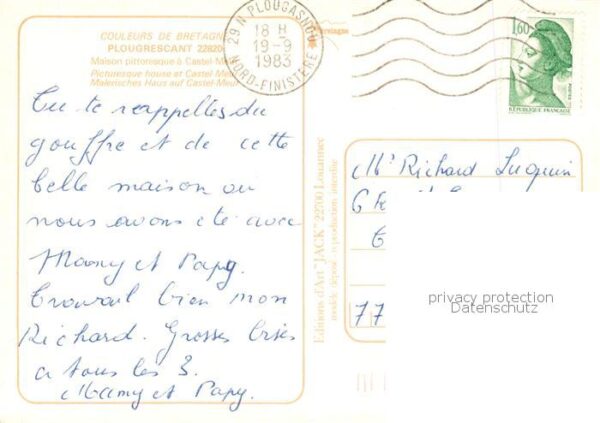 COULEURS DE BRETAGNE
PLOUGRESCANT 22820
Maison pittoresque à Castel-Meur
Picturesque house at Castel-Meur
Malerisches Haus auf Castel-Meur
29 N PLOUGASNOU
18 H
19-9
1983
NORD-FINISTERE
1,60
POSTES
REPUBLIQUE FRANÇAISE
Tu te rappelles du
gouffre et de cette
belle maison où
nous avons été avec
Mamy et Papy.
Travail bien mon
Richard. Grosses bises
a tous les 3.
Mamy et Papy.
Editions d'Art "JACK" 22700 Louannec
modèle déposé - reproduction interdite
Mr Richard
6
77
privacy protection
Datenschutz